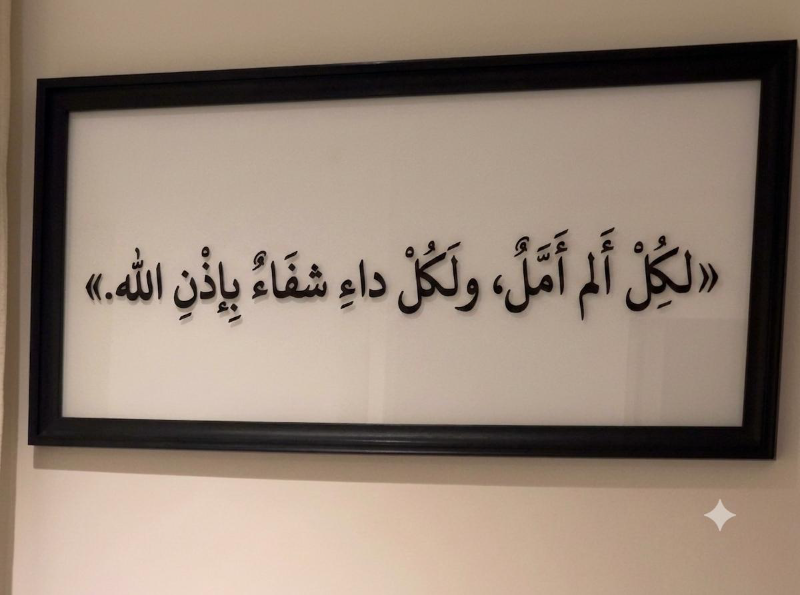 «لكُِلْ أَلم أَمَّلٌ، ولَكُلْ داءِ شفَاءٌ بِإذْنِ الله.»